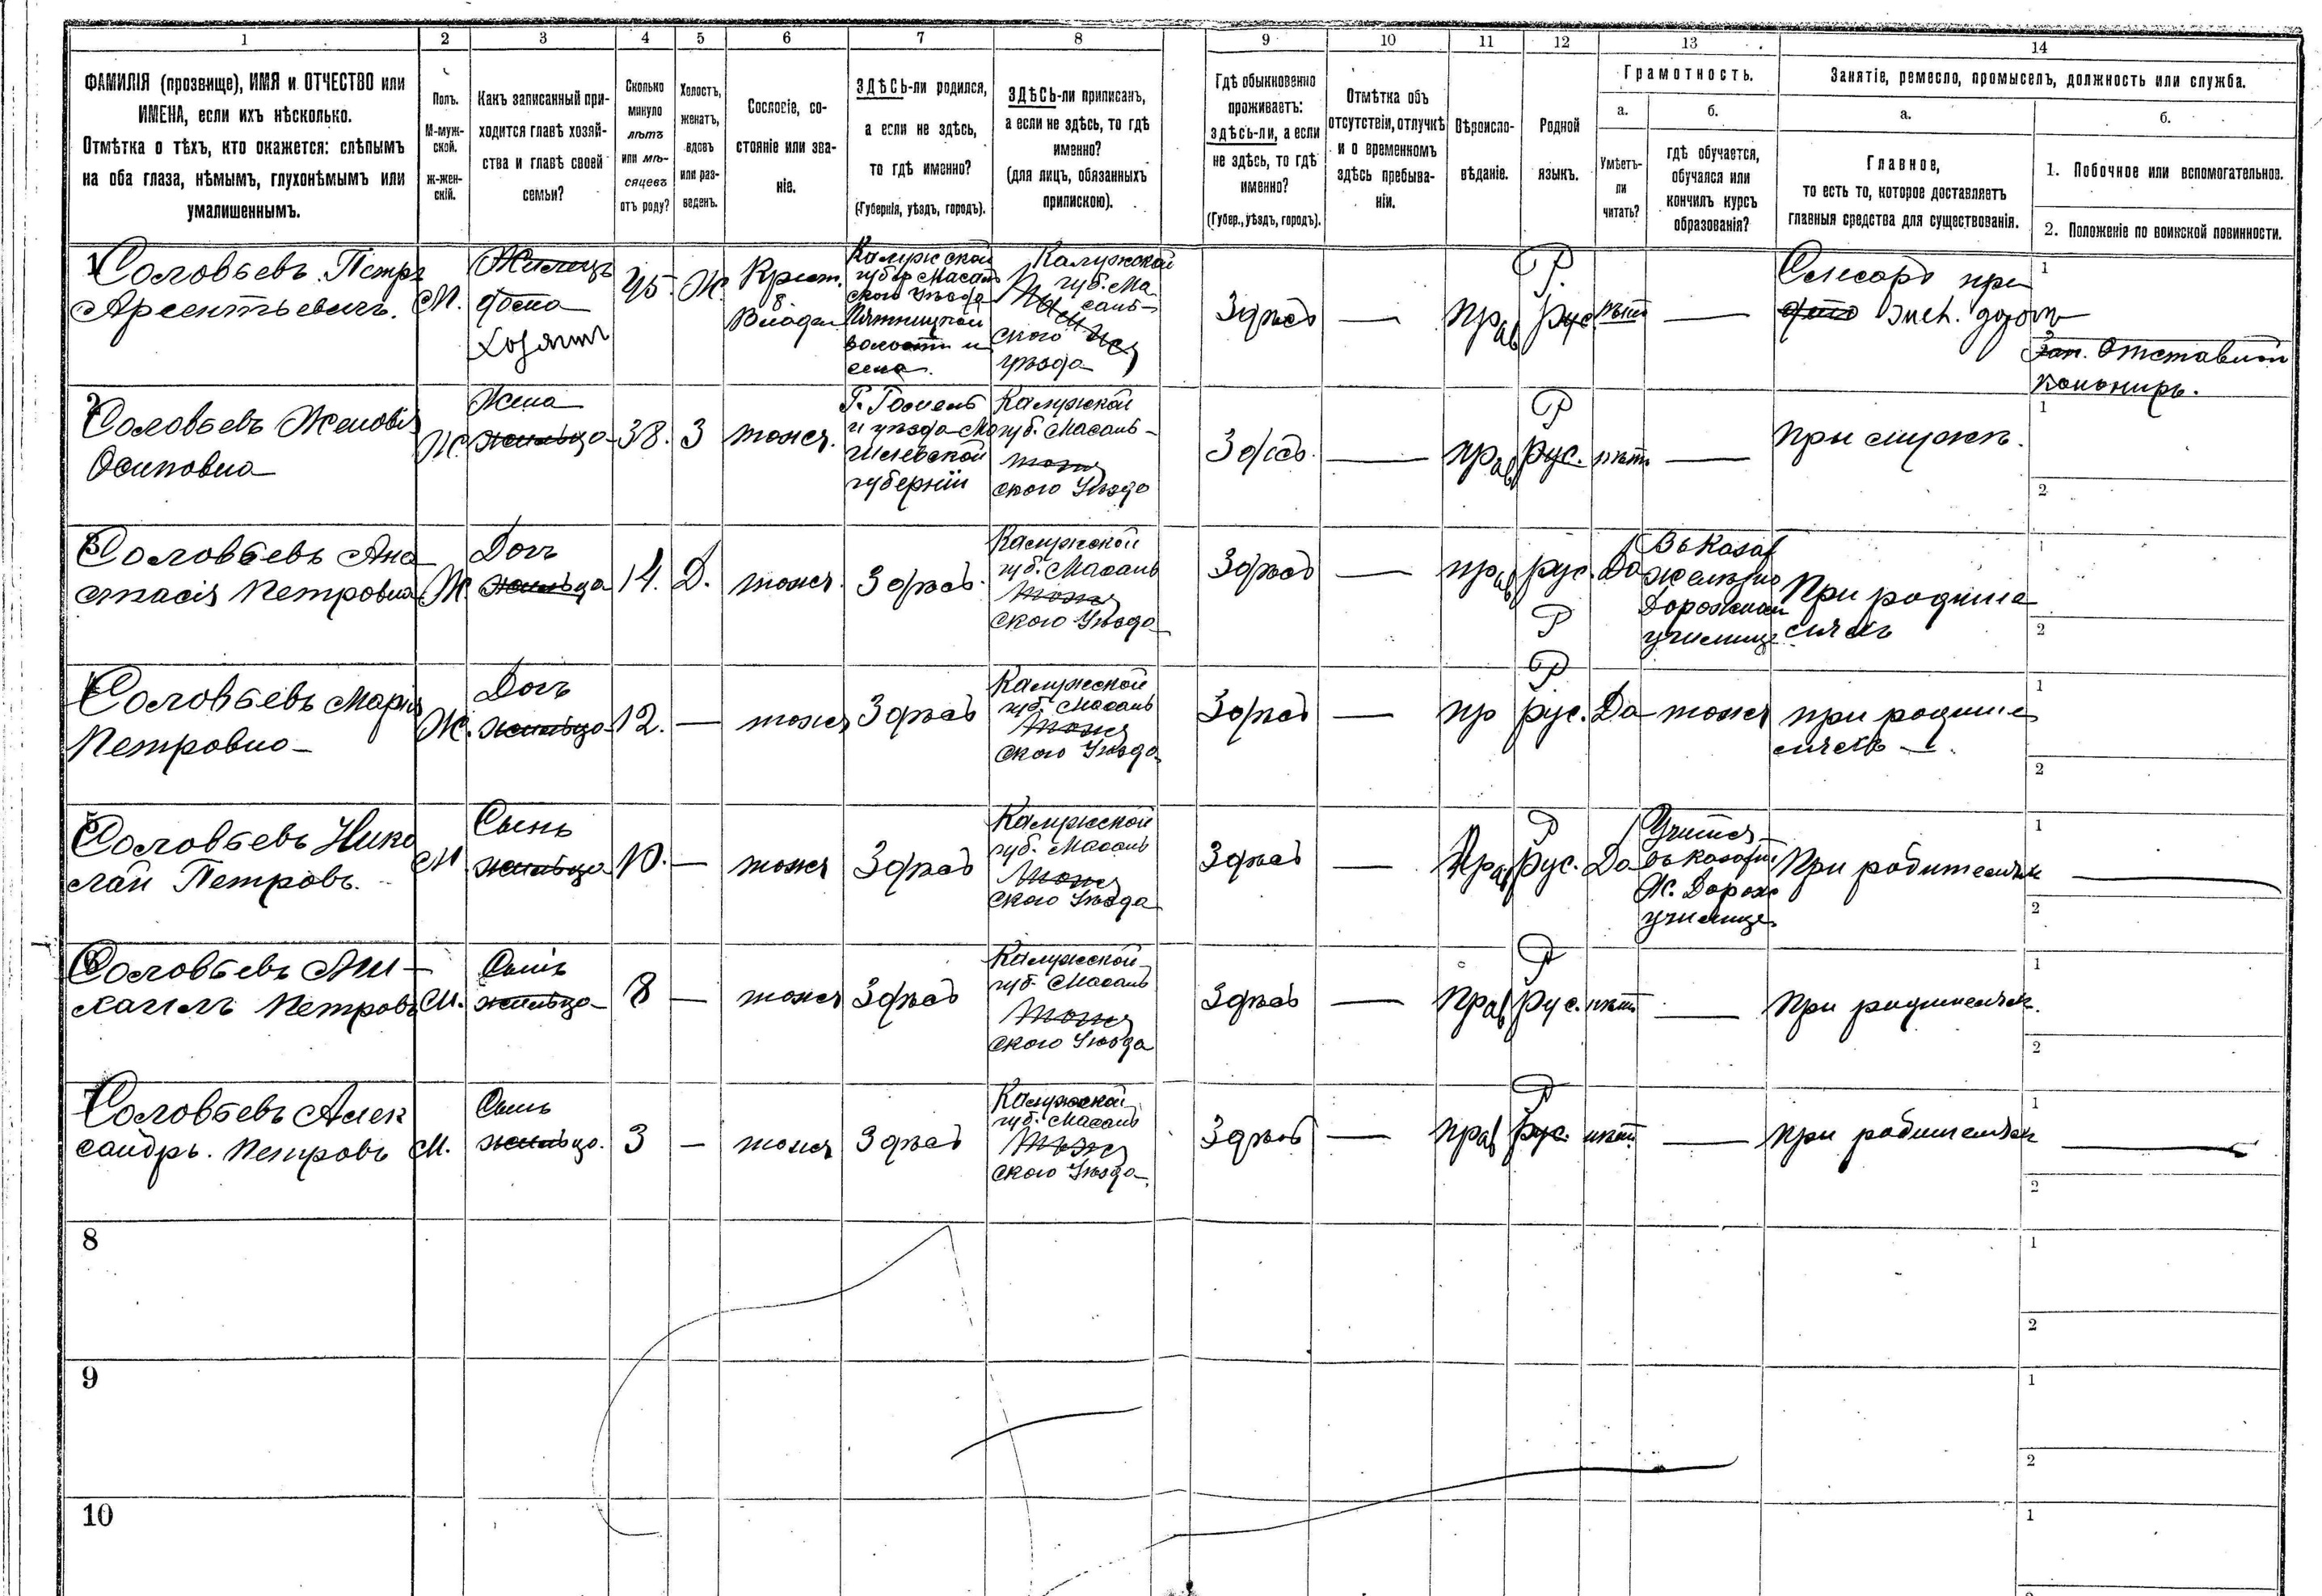 1 2 3 4 5 6 7 8 9 10 11 12 13 14
ФАМИЛІЯ (прозвище), ИМЯ и ОТЧЕСТВО или
ИМЕНА, если ихъ нѣсколько.
Отмѣтка о тѣхъ, кто окажется: слѣпымъ
на оба глаза, нѣмымъ, глухонѣмымъ или
умалишеннымъ.
Полъ.
М-муж-
ской.
Ж-жен-
скій.
Какъ записанный при-
ходится главѣ хозяй-
ства и главѣ своей
семьи?
Сколько
минуло
лѣтъ
или мѣ-
сяцевъ
отъ роду?
Холостъ,
женатъ,
вдовъ
или раз-
веденъ.
Сословіе, со-
стояніе или зва-
ніе.
ЗДѢСЬ-ли родился,
а если не здѣсь,
то гдѣ именно?
(Губернія, уѣздъ, городъ).
ЗДѢСЬ-ли приписанъ,
а если не здѣсь, то гдѣ
именно?
(для лицъ, обязанныхъ
припискою).
Гдѣ обыкновенно
проживаетъ:
здѣсь-ли, а если
не здѣсь, то гдѣ
именно?
(Губер., уѣздъ, городъ).
Отмѣтка объ
отсутствіи, отлучкѣ
и о временномъ
здѣсь пребыва-
ніи.
Вѣроиспо-
вѣданіе.
Родной
языкъ.
Грамотность.
а.
Умѣетъ-
ли
читать?
б.
гдѣ обучается,
обучался или
кончилъ курсъ
образованія?
Занятіе, ремесло, промыселъ, должность или служба.
а.
Главное,
то есть то, которое доставляетъ
главныя средства для существованія.
б.
1. Побочное или вспомогательное.
2. Положеніе по воинской повинности.
1
Соловьевъ Петръ
Арсентьевичъ.
М.
Жилецъ
дома
Хозяинъ
45.
Ж.
Крест.
Владел
Калужской
губер Масаль
ского Уѣзда
волости и
села.
Калужской
губ. Ма
саль-
ского
уѣзда
Здѣсь
—
прав
Р.
рус
нѣтъ
—
Слесарь при
жел. дорогѣ
1
2
Отставной
канониръ.
2
Соловьевъ
Осиповна
Ж.
Жена
жильца
38.
З
тоже.
Г. Гомель
и уѣзда Мо
гилевской
губерніи
Калужской
губ. Масаль-
тоже
ского Уѣзда
Здѣсь.
—
прав
Р
рус.
нѣтъ
—
При мужѣ.
1
2
3
Соловьевъ Ана
стасія Петровна
Ж.
Дочь
жильца
14.
Д.
тоже.
Здѣсь.
Калужской
губ. Масаль
тоже
ского Уѣзда
Здѣсь
—
прав
рус.
Р
Да
Въ Казай
желѣзно
Дорожном
училищѣ
При родите
ляхъ
1
2
4
Соловьевъ Марія
Петровна
Ж.
Дочь
жильца
12.
—
тоже
Здѣсь
Калужской
губ. Масаль
тоже
ского Уѣзда
Здѣсь
—
пр
Р
рус.
Да
тоже
при родите
ляхъ
1
2
5
Соловьевъ Нико
лай Петровъ.
М
Сынъ
жильца
10.
—
тоже
Здѣсь
Калужской
губ. Масаль
тоже
ского Уѣзда
Здѣсь
—
Прав
Р
рус.
Да
Учится
въ
Ж. Дорож
училище
При родителяхъ
1
2
6
Соловьевъ Ми-
хаилъ Петровъ
М.
Сынъ
жильца
8
—
тоже
Здѣсь
Калужской
губ. Масаль
тоже
ского Уѣзда
Здѣсь
—
Прав
Р
рус.
нѣтъ
—
При родителях.
1
2
7
Соловьевъ Алек
сандръ. Петровъ
М.
Сынъ
жильца.
3
—
тоже
Здѣсь
Калужской
губ. Масаль
тоже
ского Уѣзда
Здѣсь
—
Прав
Р
рус.
нѣтъ
—
при родителях
1
2
8
1
2
9
1
2
10
1